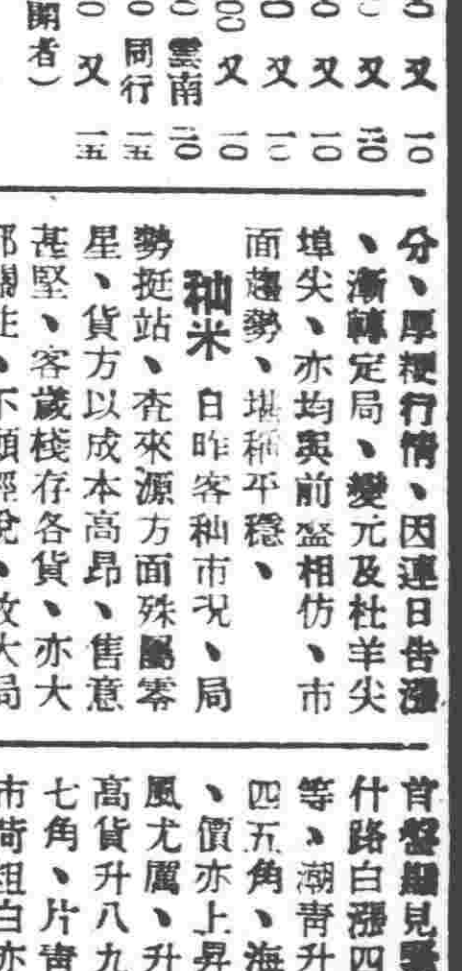 又 一〇
又 一〇
又 一〇
又
又 一〇
雲南 一〇
同行 一五
又 一五
開者）
分、厚粳行情、因連日告漲
、漸轉定局、變元及杜羊尖
埠尖、亦均與前盤相仿、市
面趨勢、堪稱平穩、
秈米 白昨客秈市况、局
勢挺站、查來源方面殊屬零
星、貨方以成本高昂、售意
甚堅、客歲棧存各貨、亦大
首盤 見
什路白漲四
等、潮青升
四五角、海
、價亦上昇
風尤厲、升
高貨升八九
七角、片青